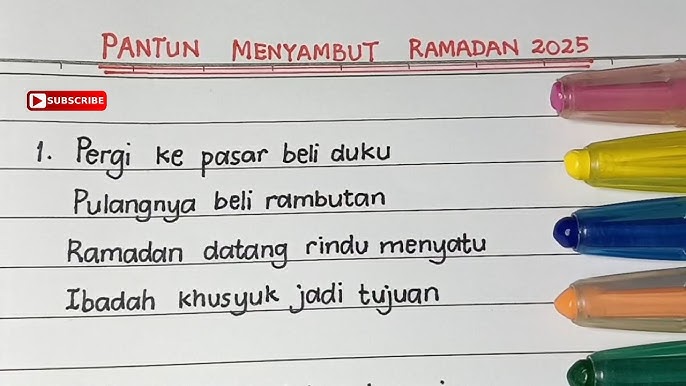 PANTUN MENYAMBUT RAMADAN 2025
SUBSCRIBE
1. Pergi ke pasar beli duku
Pulangnya beli rambutan
Ramadan datang rindu menyatu
Ibadah khusyuk jadi tujuan